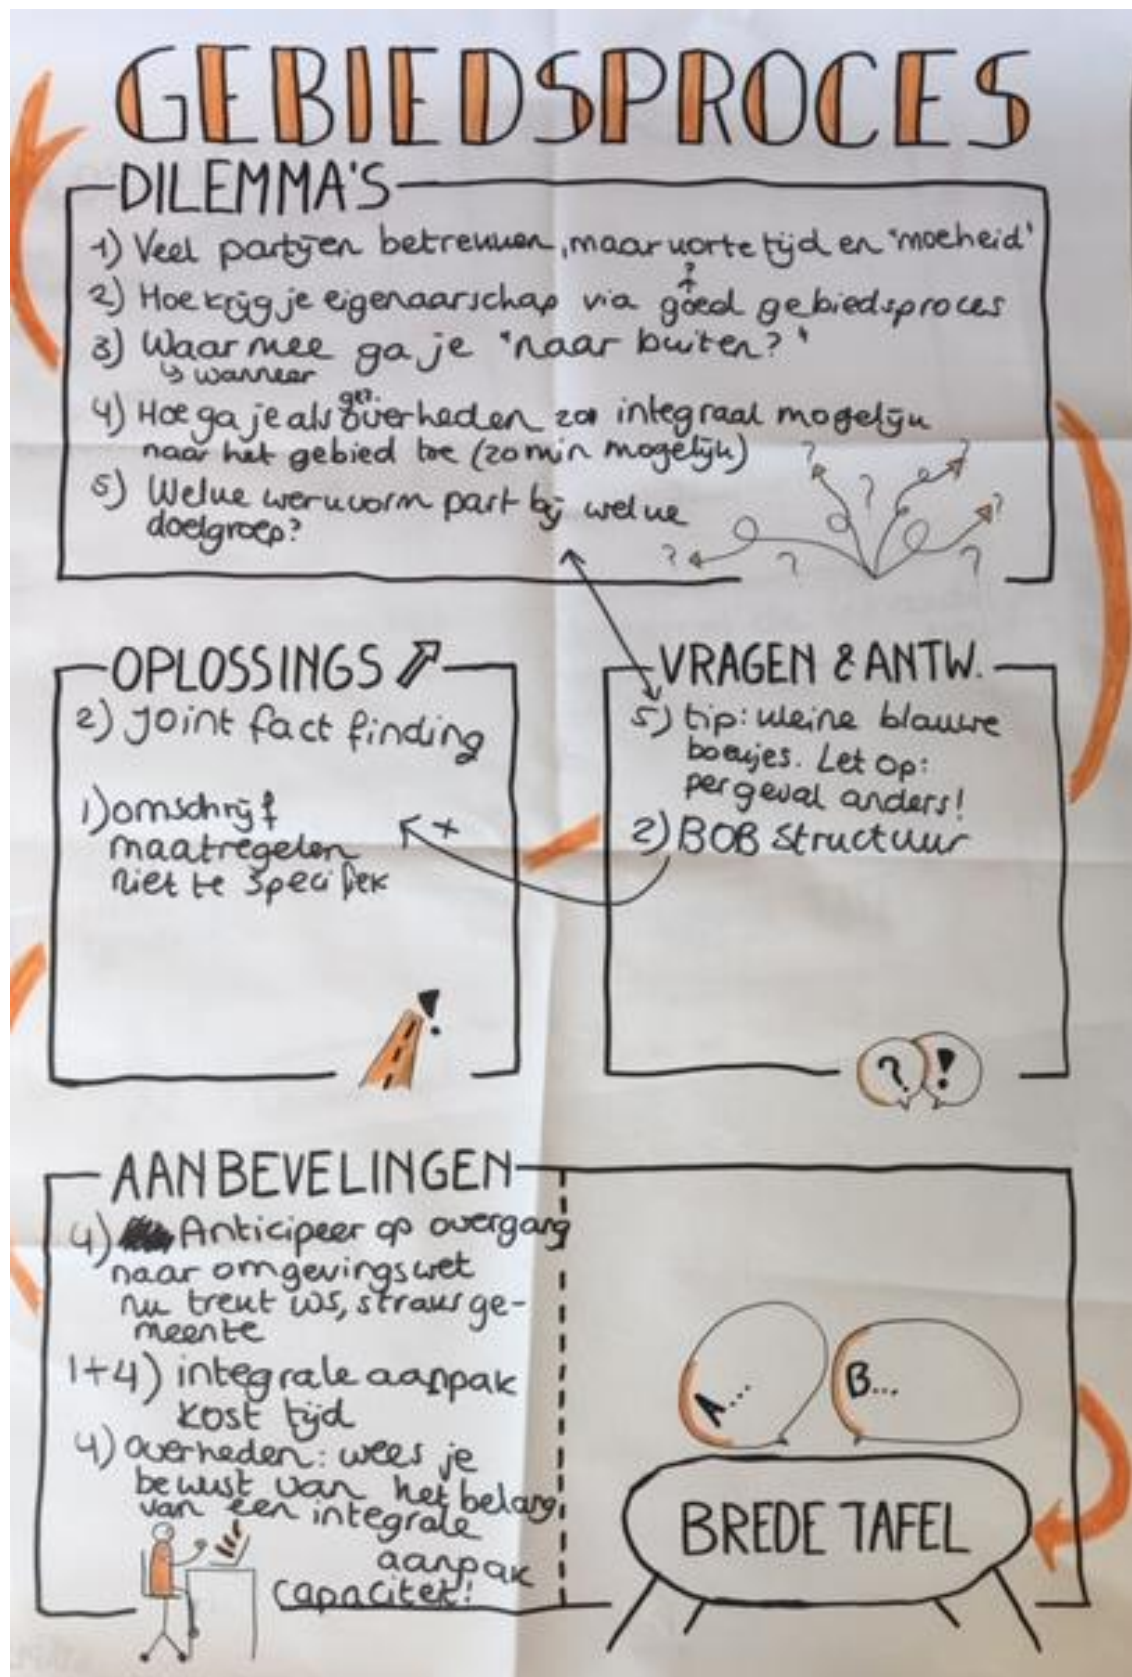 GEBIEDSPROCES
DILEMMA'S
1) Veel partijen betrekken, maar korte tijd en "moeheid"
?
2) Hoe krijg je eigenaarschap via goed gebiedsproces
3) Waar mee ga je "naar buiten?"
↳ wanneer
gez.
4) Hoe ga je als overheden zo integraal mogelijk
naar het gebied toe (zo min mogelijk)
5) Welke werkvorm past bij welke
doelgroep?
? ? ? ? ? ? ?
OPLOSSINGS
2) Joint fact finding
1) omschrijf
maatregelen
niet te specifiek
VRAGEN & ANTW.
5) tip: kleine blauwe
boekjes. Let op:
per geval anders!
2) BOB structuur
+
!
? !
AANBEVELINGEN
4) Anticipeer op overgang
naar omgevingswet
nu trekt WS, straks ge-
meente
1+4) integrale aanpak
kost tijd
4) overheden: wees je
bewust van het belang
van een integrale
aanpak
capaciteit!
A...
B...
BREDE TAFEL